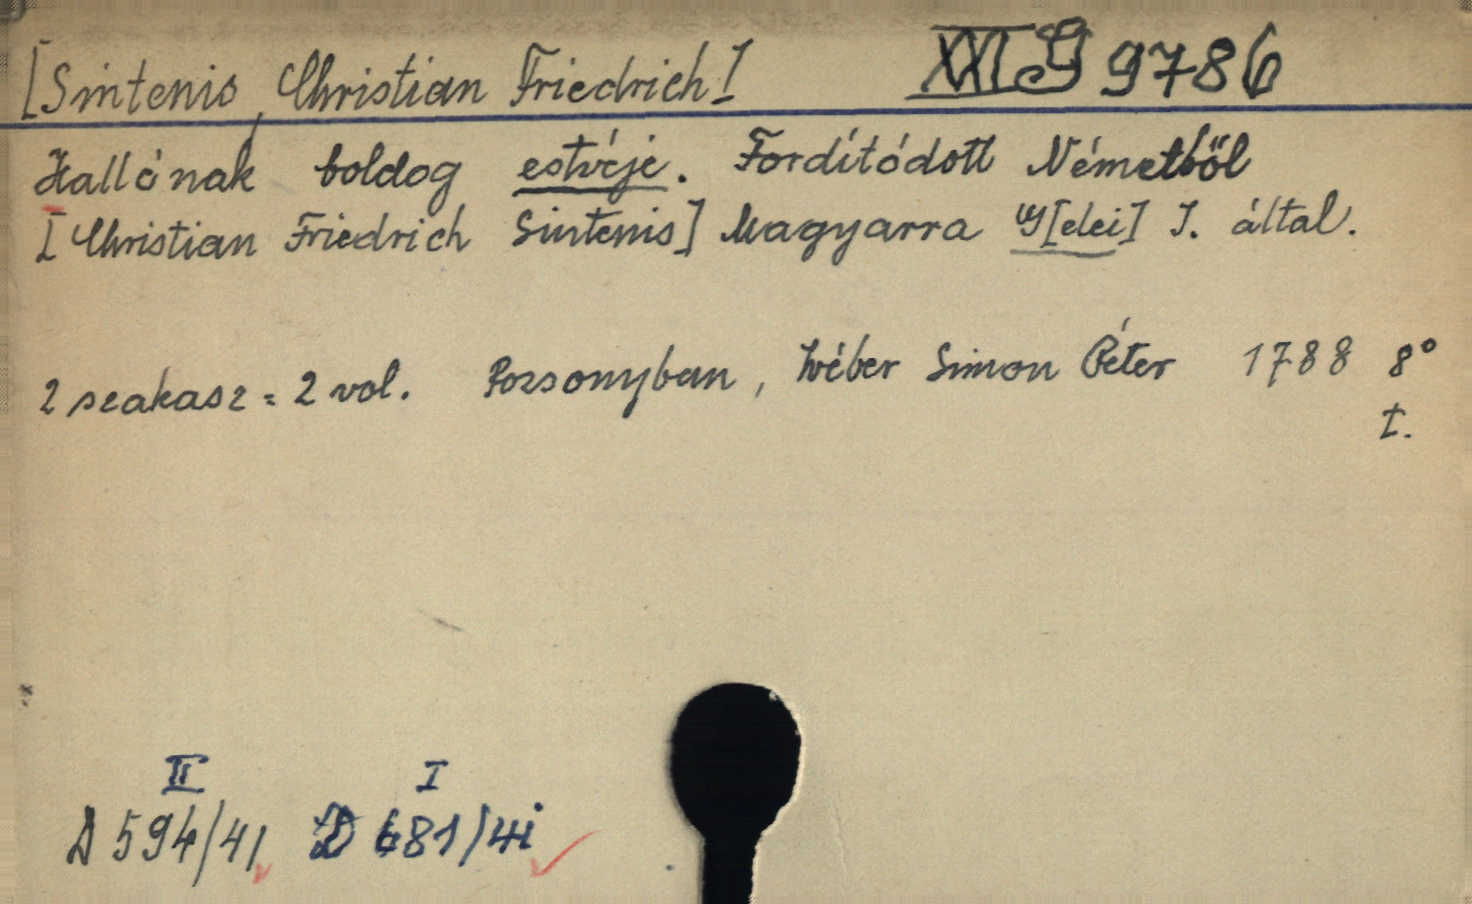 [Sintenis, Christian Friedrich] XXI G 9786
Hallónak boldog estvéje. Fordítódott Németből
[Christian Friedrich Sintenis] Magyarra G[elei] J. által.
2 szakasz = 2 vol. Pozsonyban, Wéber Simon Péter 1788 8°
I.
II I
D 594/41 D 681/41